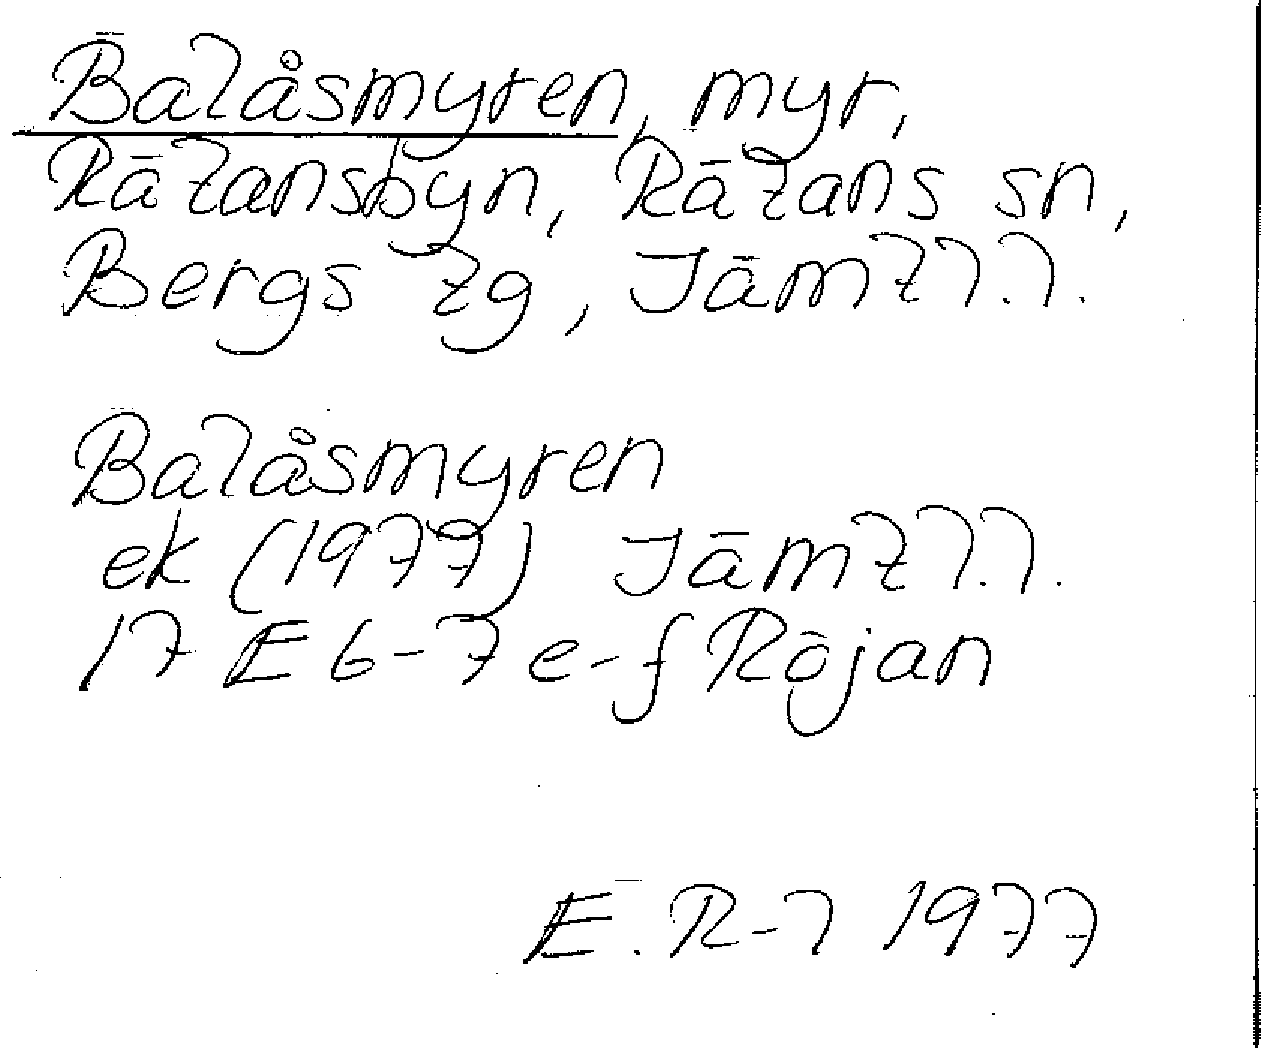 Balåsmyren, myr,
Rätansbyn, Rätans sn,
Bergs tg, Jämtl.l.
Balåsmyren
ek (1977) Jämtl.l.
17 E 6-7 e-f Röjan
E. R-l 1977